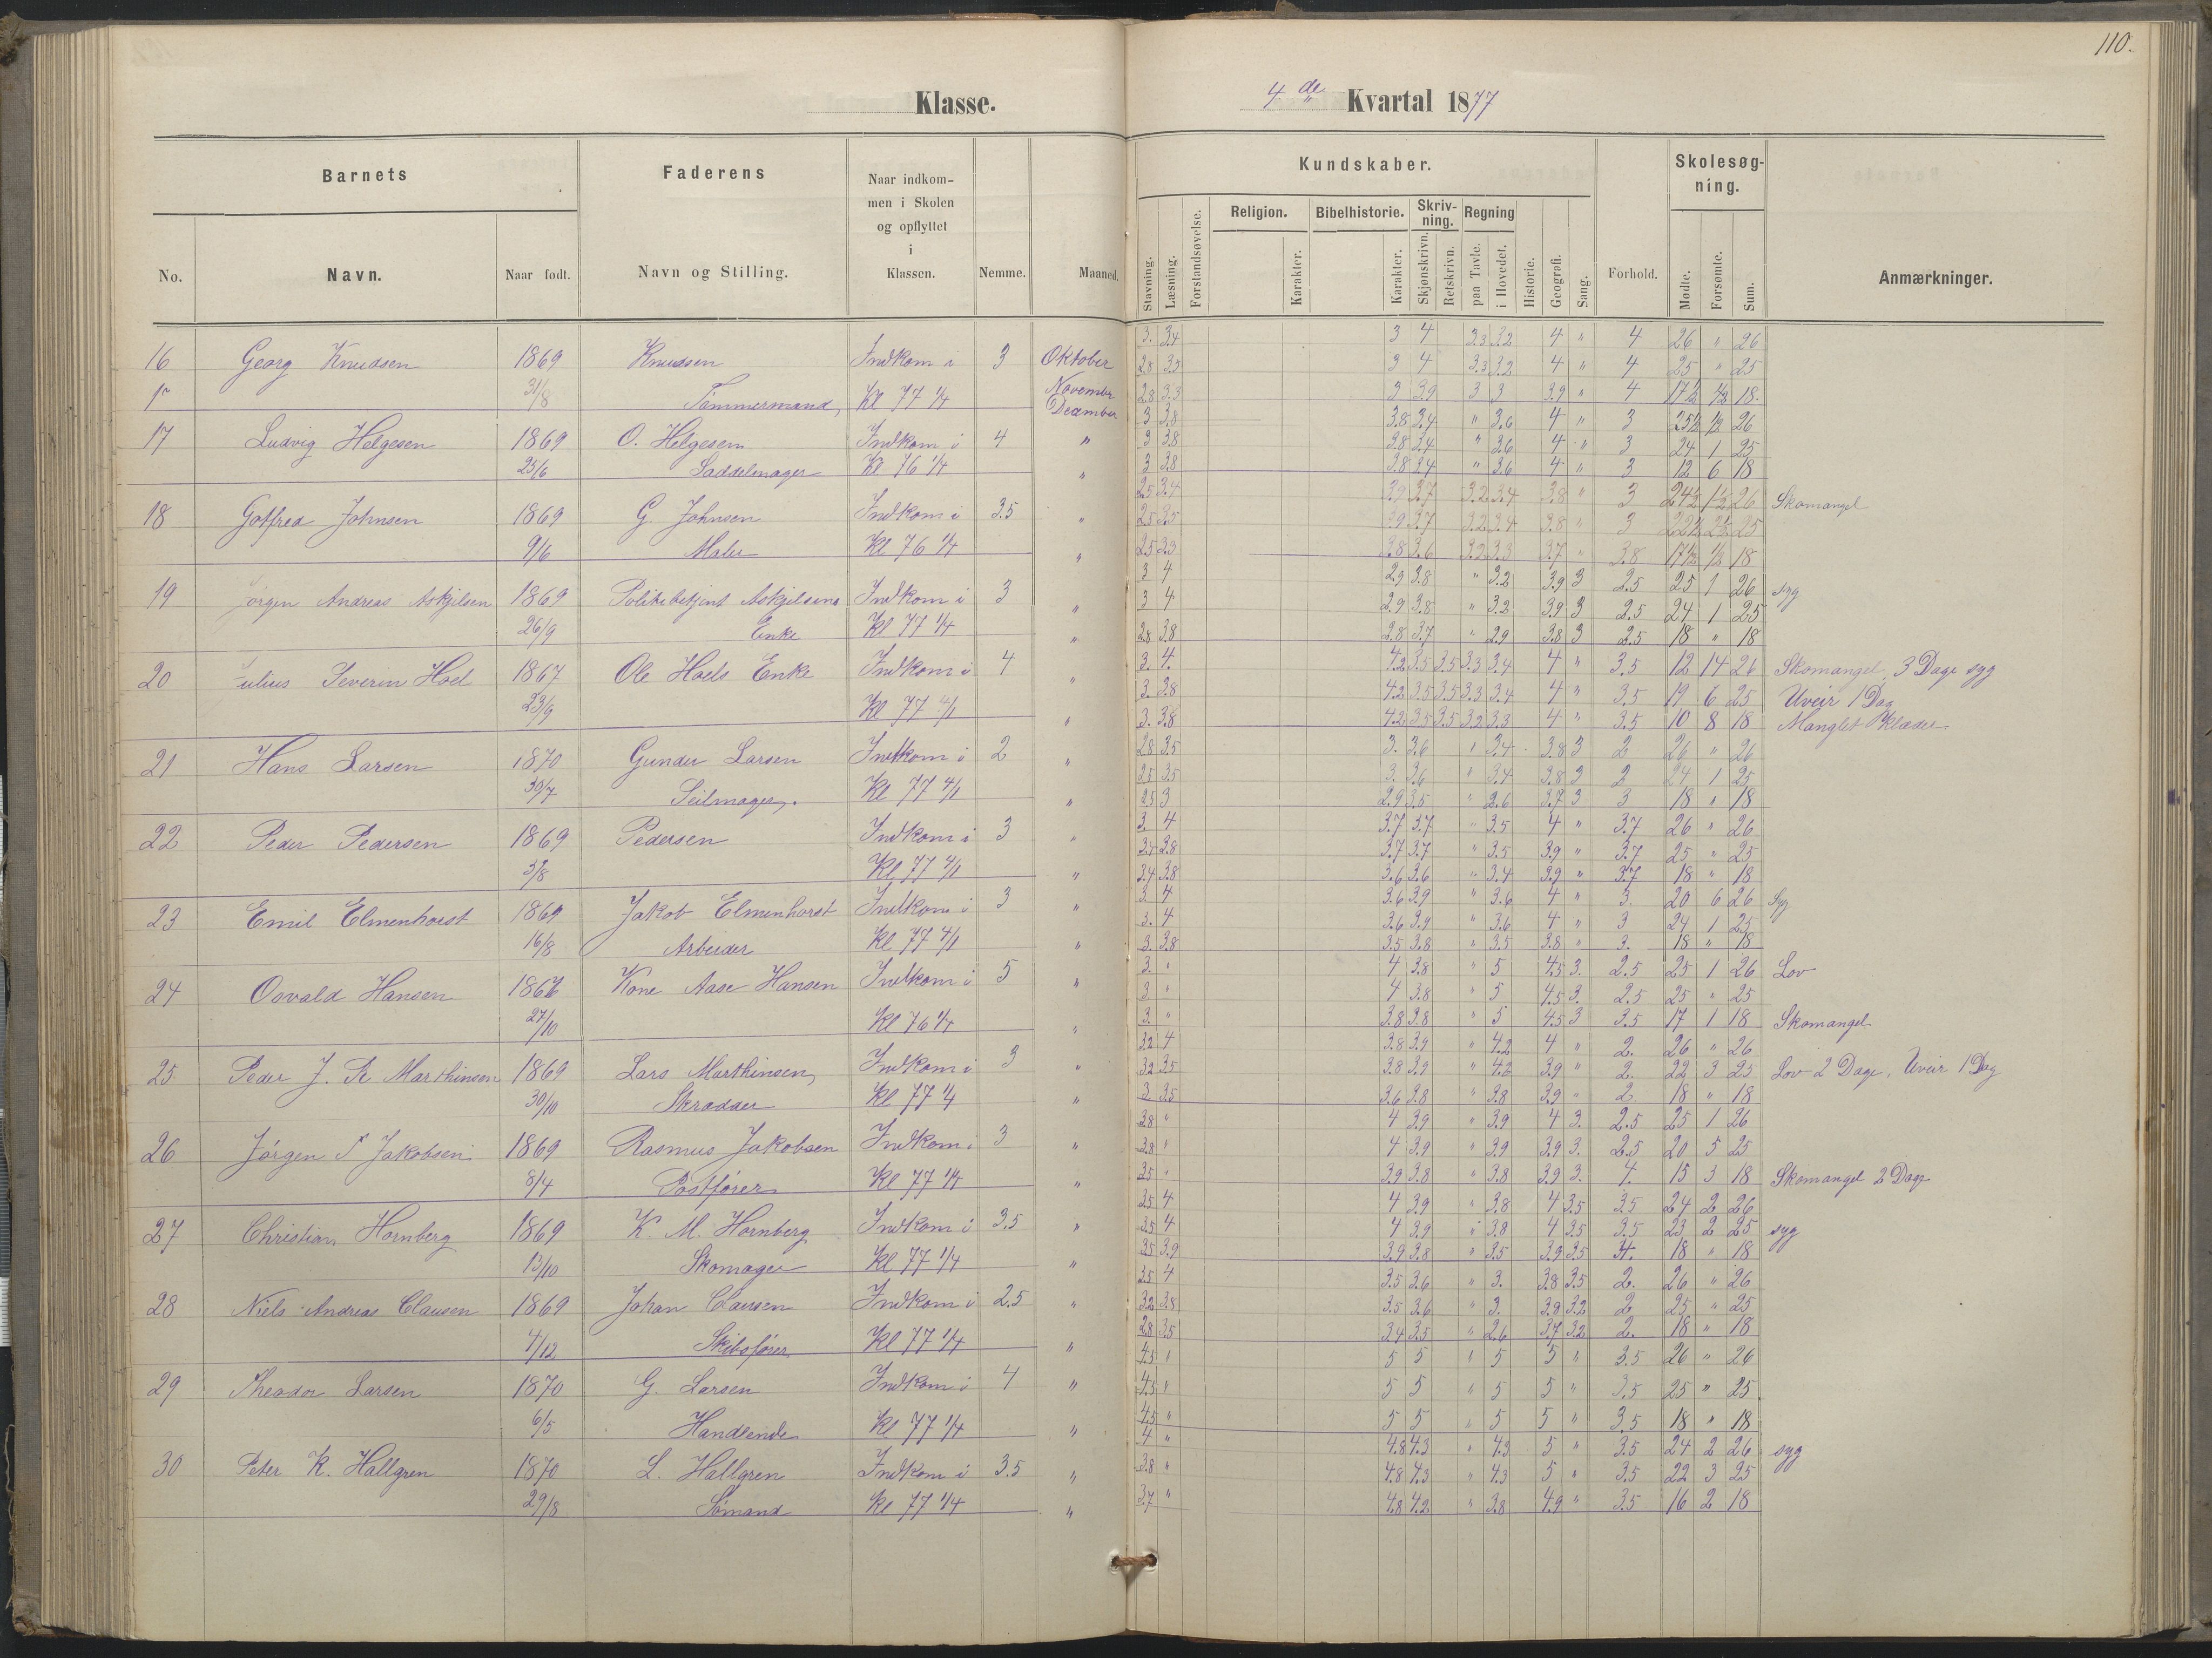 110.
Klasse. 4de Kvartal 1877
Barnets Faderens Naar indkommen i Skolen og opflyttet i Klassen. Nemme. Maaned. Kundskaber. Forhold. Skolesøgning. Anmærkninger.
No. Navn. Naar født. Navn og Stilling. Stavning. Læsning. Forstandsøvelse. Religion. Karakter. Bibelhistorie. Karakter. Skrivning. Skjønskrivn. Retskrivn. Regning paa Tavle. i Hovedet. Historie. Geografi. Sang. Mødte. Forsømte. Sum.
3. 3.4 3 4 3.3 3.2 4 " 4 26 " 26
16 Georg Knudsen 1869 Knudsen Indkom i 3 Oktober 2.8 3.5 3 4 3.3 3.2 4 " 4 25 " 25
31/8 Tømmermand, Kl 77 1/4 November December 2.8 3.3 3 3.9 3 3 3.9 " 4 17½ ½ 18.
3 3.8 3.8 3.4 " 3.6 4 " 3 25½ ½ 26
17 Ludvig Helgesen 1869 O. Helgesen Indkom i 4 " 3 3.8 3.8 3.4 " 3.6 4 " 3 24 1 25
25/6 Saddelmager Kl 76 1/4 " 3 3.8 3.8 3.4 " 3.6 4 " 3 12 6 18
2.5 3.4 3.9 3.7 3.2 3.4 3.8 " 3 24½ 1½ 26 Skomangel
18 Gotfred Johnsen 1869 G. Johnsen Indkom i 3.5 " 2.5 3.5 3.9 3.7 3.2 3.4 3.8 " 3 22½ 2½ 25
9/6 Maler Kl 76 1/4 " 2.5 3.3 3.8 3.6 3.2 3.3 3.7 " 3.8 17½ ½ 18
3 4 2.9 3.8 " 3.2 3.9 3 2.5 25 1 26 syg
19 Jørgen Andreas Askjilsen 1869 Politibetjent Askjilsens Indkom i 3 " 3 4 2.9 3.8 " 3.2 3.9 3 2.5 24 1 25
26/9 Enke Kl 77 1/4 " 2.8 3.8 2.8 3.7 " 2.9 3.8 3 2.5 18 " 18
3. 4. 4.2 3.5 3.5 3.3 3.4 4 " 3.5 12 14 26 Skomangel, 3 Dage syg
20 Julius Severin Hoel 1867 Ole Hoels Enke Indkom i 4 " 3. 3.8 4.2 3.5 3.5 3.3 3.4 4 " 3.5 19 6 25 Uveir 1 Dag
23/9 Kl 77 4/1 " 3. 3.8 4.2 3.5 3.5 3.2 3.3 4 " 3.5 10 8 18 Manglet Klæder
2.8 3.5 3. 3.6 " 3.4 3.8 3 2 26 " 26
21 Hans Larsen 1870 Gunder Larsen Indkom i 2 " 2.5 3.5 3. 3.6 " 3.4 3.8 3 2 24 1 25
30/7 Seilmager. Kl 77 4/1 " 2.5 3 2.9 3.5 " 2.6 3.7 3 3 18 " 18
3. 4 3.7 3.7 " 3.5 4 " 3.7 26 " 26
22 Peder Pedersen 1869 Pedersen Indkom i 3 " 3.4 3.8 3.7 3.7 " 3.5 3.9 " 3.7 25 " 25
3/8 Kl 77 4/1 " 3.4 3.8 3.6 3.6 " 3.4 3.9 " 3.7 18 " 18
3 4 3.6 3.9 " 3.6 4 " 3. 20 6 26 Syg
23 Emil Elmenhorst 1869 Jakob Elmenhorst Indkom i 3 " 3. 4 3.6 3.9 " 3.6 4 " 3 24 1 25
16/8 Arbeider Kl 77 4/1 " 3. 3.8 3.5 3.8 " 3.5 3.8 " 3. 18 " 18
3. " 4 3.8 " 5 4.5 3. 2.5 25 1 26 Lov
24 Osvald Hansen 1867 Kone Aase Hansen Indkom i 5 " 3 " 4 3.8 " 5 4.5 3. 2.5 25 " 25
27/10 Kl 76 1/4 " 3. " 3.8 3.8 " 5 4.5 3 3.5 17 1 18 Skomangel
3.2 4 3.8 3.9 " 4.2 4 " 2. 26 " 26
25 Peder J. Marthinsen 1869 Lars Marthinsen, Indkom i 3 " 3.2 3.5 3.8 3.9 " 4.2 3.9 " 2. 22 3 25 Lov 2 Dage, Uveir 1 Dag
30/10 Skrædder Kl 77 1/4 " 3. 3.5 3.6 3.8 " 3.8 3.9 " 2. 18 " 18
3.8 " 4 3.9 " 3.9 4 3. 2.5 25 1 26
26 Jørgen Jakobsen 1869 Rasmus Jakobsen Indkom i 3 " 3.8 " 4 3.9 " 3.9 3.9 3. 2.5 20 5 25
8/4 Postfører Kl 77 1/4 " 3.5 " 3.9 3.8 " 3.8 3.9 3. 4. 15 3 18 Skomangel 2 Dage
3.5 4 4 3.9 " 3.8 4 3.5 3.5 24 2 26
27 Christian Hornberg 1869 K. M. Hornberg Indkom i 3.5 " 3.5 4 4 3.9 " 3.8 4 3.5 3.5 23 2 25 syg
13/10 Skomager Kl 77 1/4 " 3.5 3.9 3.9 3.8 " 3.5 3.9 3.5 4. 18 " 18
3.5 4 3.5 3.6 " 3. 3.8 3.5 2. 26 " 26
28 Niels Andreas Clausen 1869 Johan Clausen Indkom i 2.5 " 3.2 3.8 3.5 3.6 " 3. 3.8 3.2 2 25 " 25
4/12 Skibsfører Kl 77 1/4 " 2.8 3.5 3.4 3.5 " 2.6 3.7 3.2 2. 18 " 18
4.5 " 5 5 " 5 5 " 3.5 26 " 26
29 Theador Larsen 1870 G. Larsen Indkom i 4 " 4.5 " 5 5 " 5 5 " 3.5 25 " 25
6/5 Handlende Kl 77 1/4 " 4.5 " 5 5 " 5 5 " 3.5 18 " 18
4 " 4.8 4.3 " 4.3 5 " 3.5 24 2 26 syg
30 Peter K. Hallgren 1870 L. Hallgren Indkom i 3.5 " 3.8 " 4.8 4.3 " 4.3 5 " 3.5 22 3 25
29/8 Sømand Kl 77 1/4 " 3.7 " 4.8 4.2 " 3.8 4.9 " 3.5 16 2 18